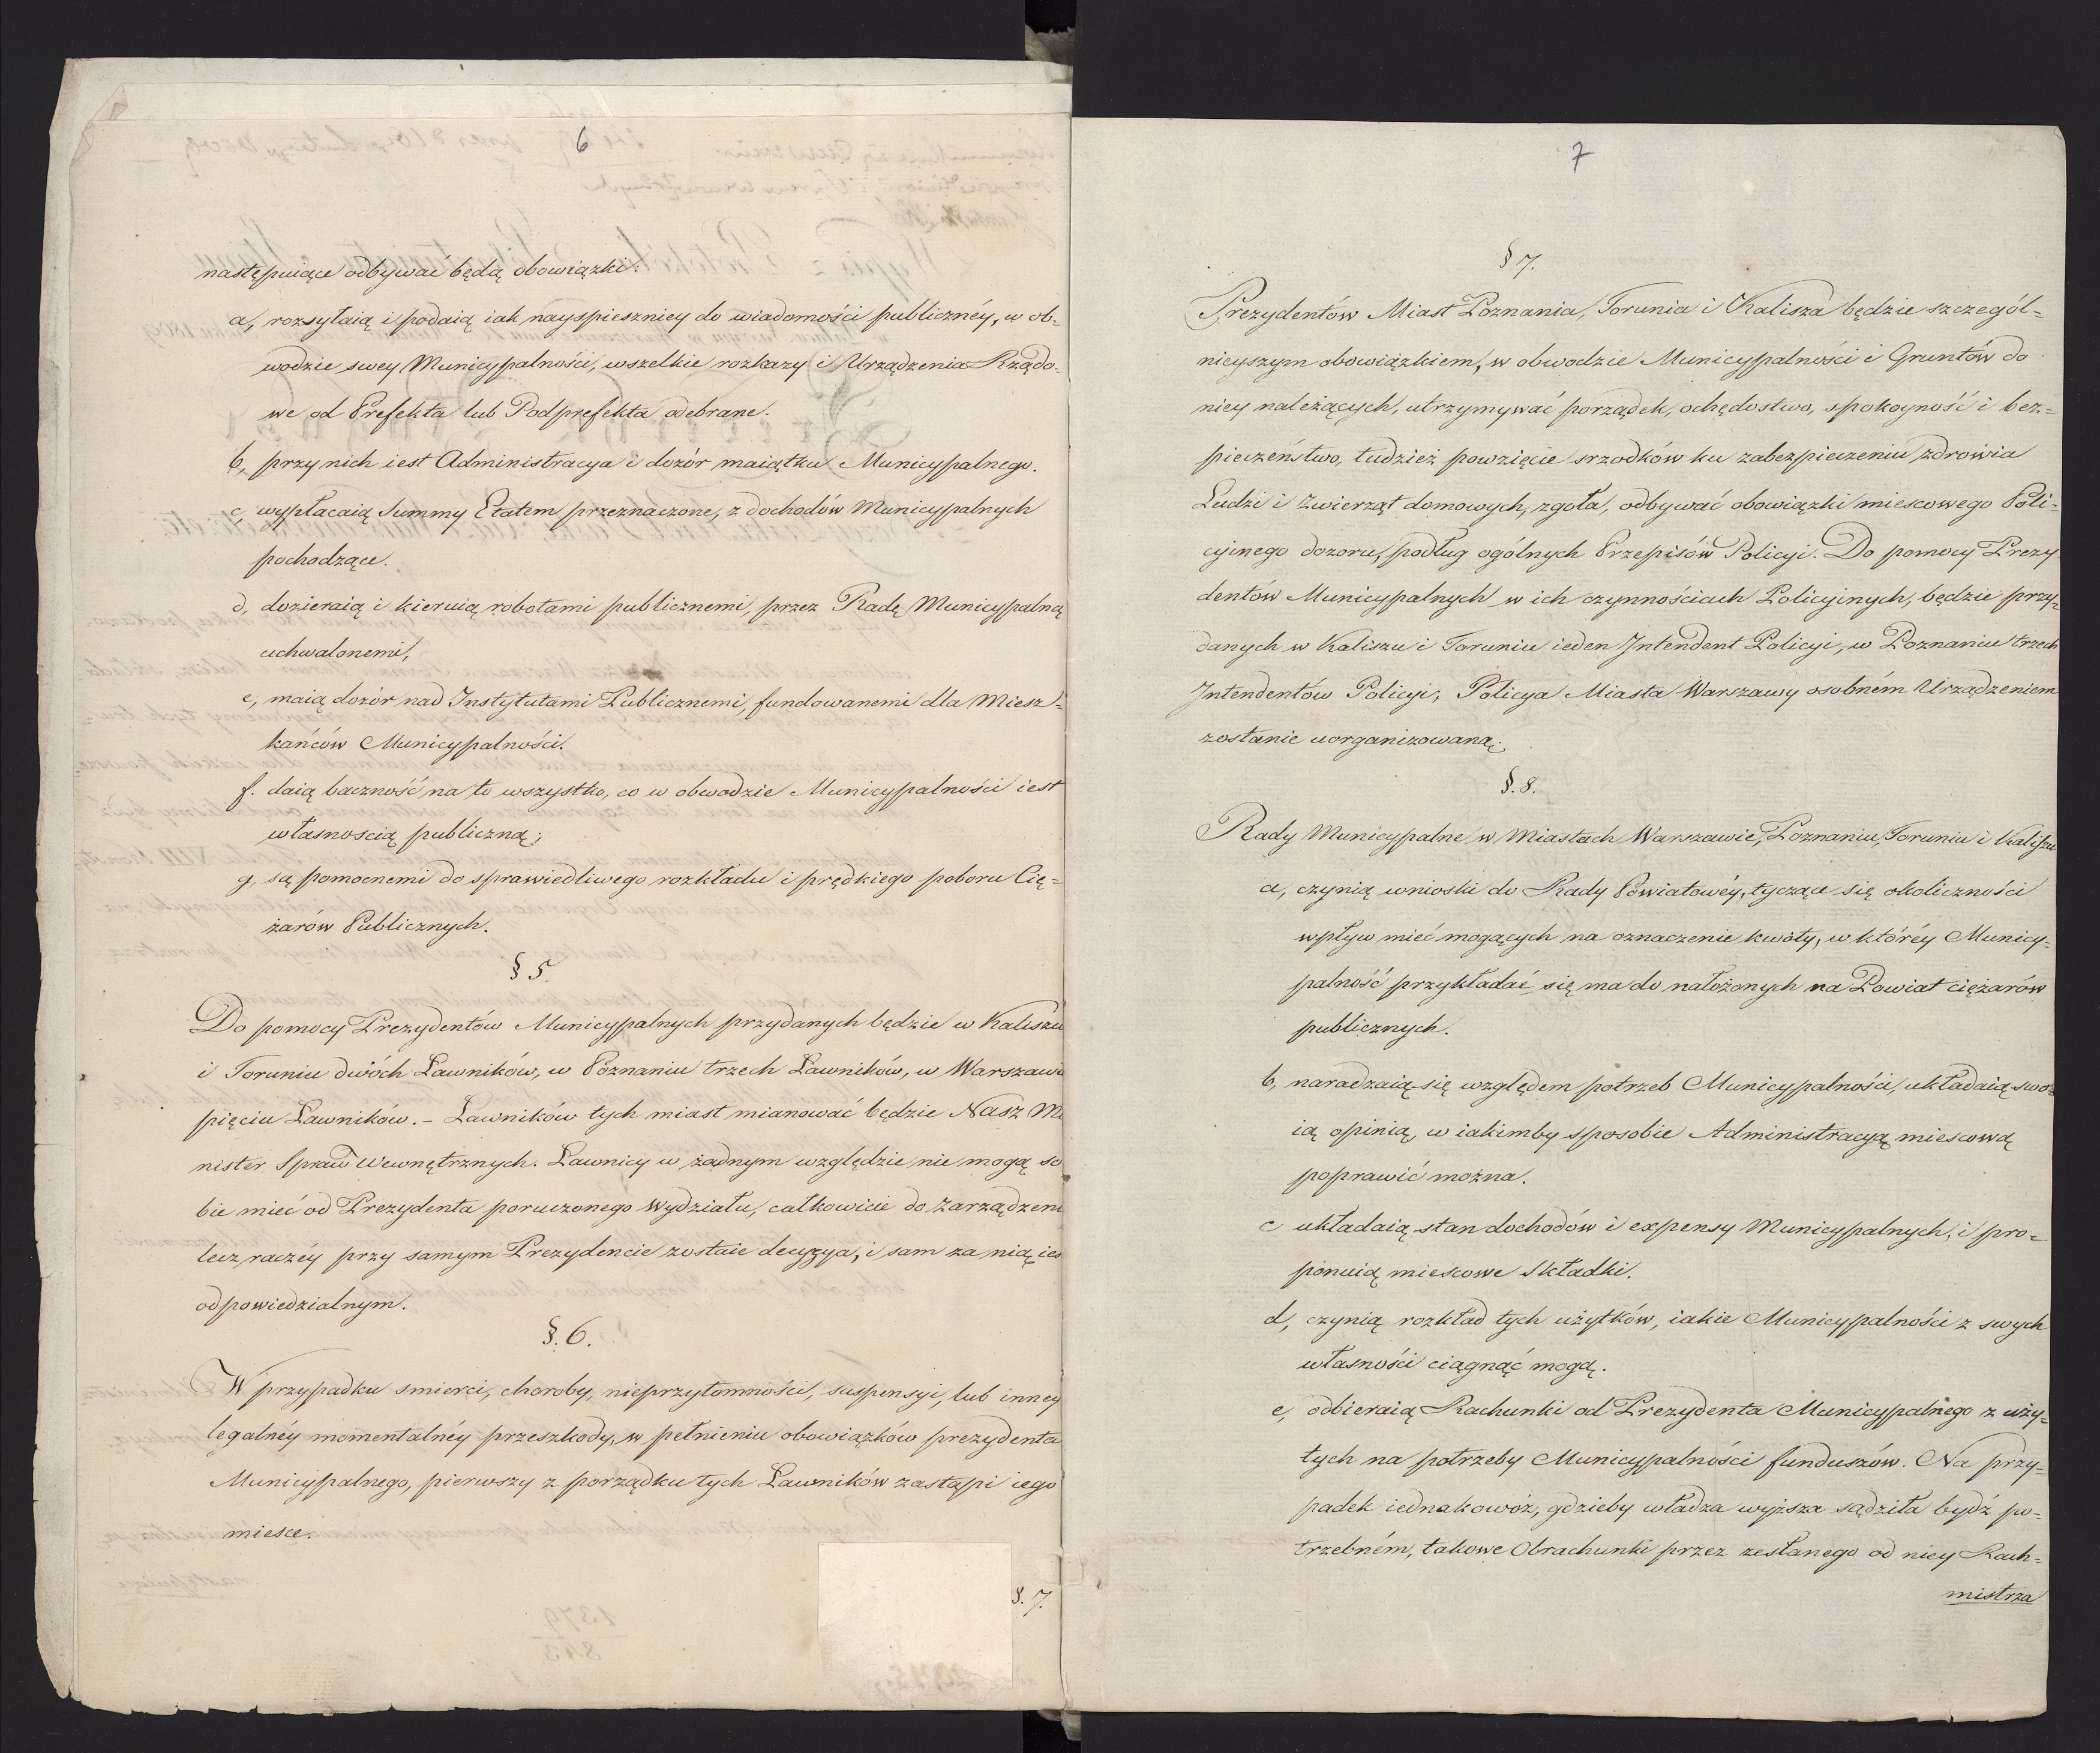 6
następuiące odbywać będą obowiązki:
a, rozsyłaią i podaią iak nayspieszniey do wiadomości publicznéy, w ob-
wodzie swey Municypalności, wszelkie rozkazy i Urządzenia Rządo-
we od Prefekta lub Podprefekta odebrane.
b, przy nich iest Administracya i dozór maiątku Municypalnego.
c, wypłacaią Summy Etatem przeznaczone, z dochodów Municypalnych
pochodzące.
d, dozieraią i kieruią robotami publicznemi, przez Radę Municypalną
uchwalonemi,
e, maią dozór nad Instytutami Publicznemi, fundowanemi dla Miesz-
kańców Municypalności.
f. daią baczność na to wszystko, co w obwodzie Municypalności iest
własnoscią publiczną;
g, są pomocnemi do sprawiedliwego rozkładu i prędkiego poboru Cię-
żarów Publicznych.
§ 5.
Do pomocy Prezydentów Municypalnych przydanych będzie w Kaliszu
i Toruniu dwóch Ławników, w Poznaniu trzech Ławników, w Warszawi
pięciu Ławników. – Ławników tych miast mianować będzie Nasz Mi
nister Spraw Wewnętrznych. Ławnicy w żadnym względzie nie mogą so
bie mieć od Prezydenta poruczonego Wydziału, całkowicie do Zarządzeni
lecz raczéy przy samym Prezydencie zostaie decyzya, i sam za nią ies
odpowiedzialnym.
§. 6.
W przypadku smierci, choroby, nieprzytomności, suspensyi, lub inney
legalnéy momentalnéy przeszkody, w pełnieniu obowiązków prezydenta
Municypalnego, pierwszy z porządku tych Ławników zastąpi iego
miesce.
§. 7.
7
§ 7.
Prezydentów Miast Poznania, Torunia i Kalisza będzie szczegól-
nieyszym obowiązkiem, w obwodzie Municypalności i Gruntów do
niey należących, utrzymywać porządek, ochędostwo, spokoyność i bez-
pieczeństwo, tudzież powzięcie srzodków ku zabezpieczeniu zdrowia
Ludzi i Zwierząt domowych, zgoła, odbywać obowiązki miescowego Poli-
cyinego dozoru, podług ogólnych Przepisów Policyi. Do pomocy Prezy
dentów Municypalnych w ich czynnościach Policyinych, będzie przy-
danych w Kaliszu i Toruniu ieden Intendent Policyi, w Poznaniu trzech
Intendentów Policyi; Policya Miasta Warszawy osobném Urządzeniem
zostanie uorganizowaną.
§. 8.
Rady Municypalne w Miastach Warszawie, Poznaniu, Toruniu i Kaliszu
a, czynią wnioski do Rady Powiatowéy, tyczące się okoliczności
wpływ mieć mogących na oznaczenie kwoty, w któréy Municy-
palność przykładać się ma do nałożonych na Powiat ciężarów
publicznych.
b, naradzaią się względem potrzeb Municypalności, układaią swo-
ią opinią, w iakiemby sposobie Administracyą miescową
poprawić można.
c układaią stan dochodów i expensy Municypalnych, i pro-
ponuią miescowe Składki.
d, czynią rozkład tych użytków, iakie Municypalności z swych
własności ciągnąć mogą.
e, odbieraią Rachunki od Prezydenta Municypalnego z uży-
tych na potrzeby Municypalności funduszów. Na przy-
padek iednakowóż, gdzieby władza wyższa sądziła bydź po-
trzebném, takowe Obrachunki przez zesłanego od niey Rach-
mistrza